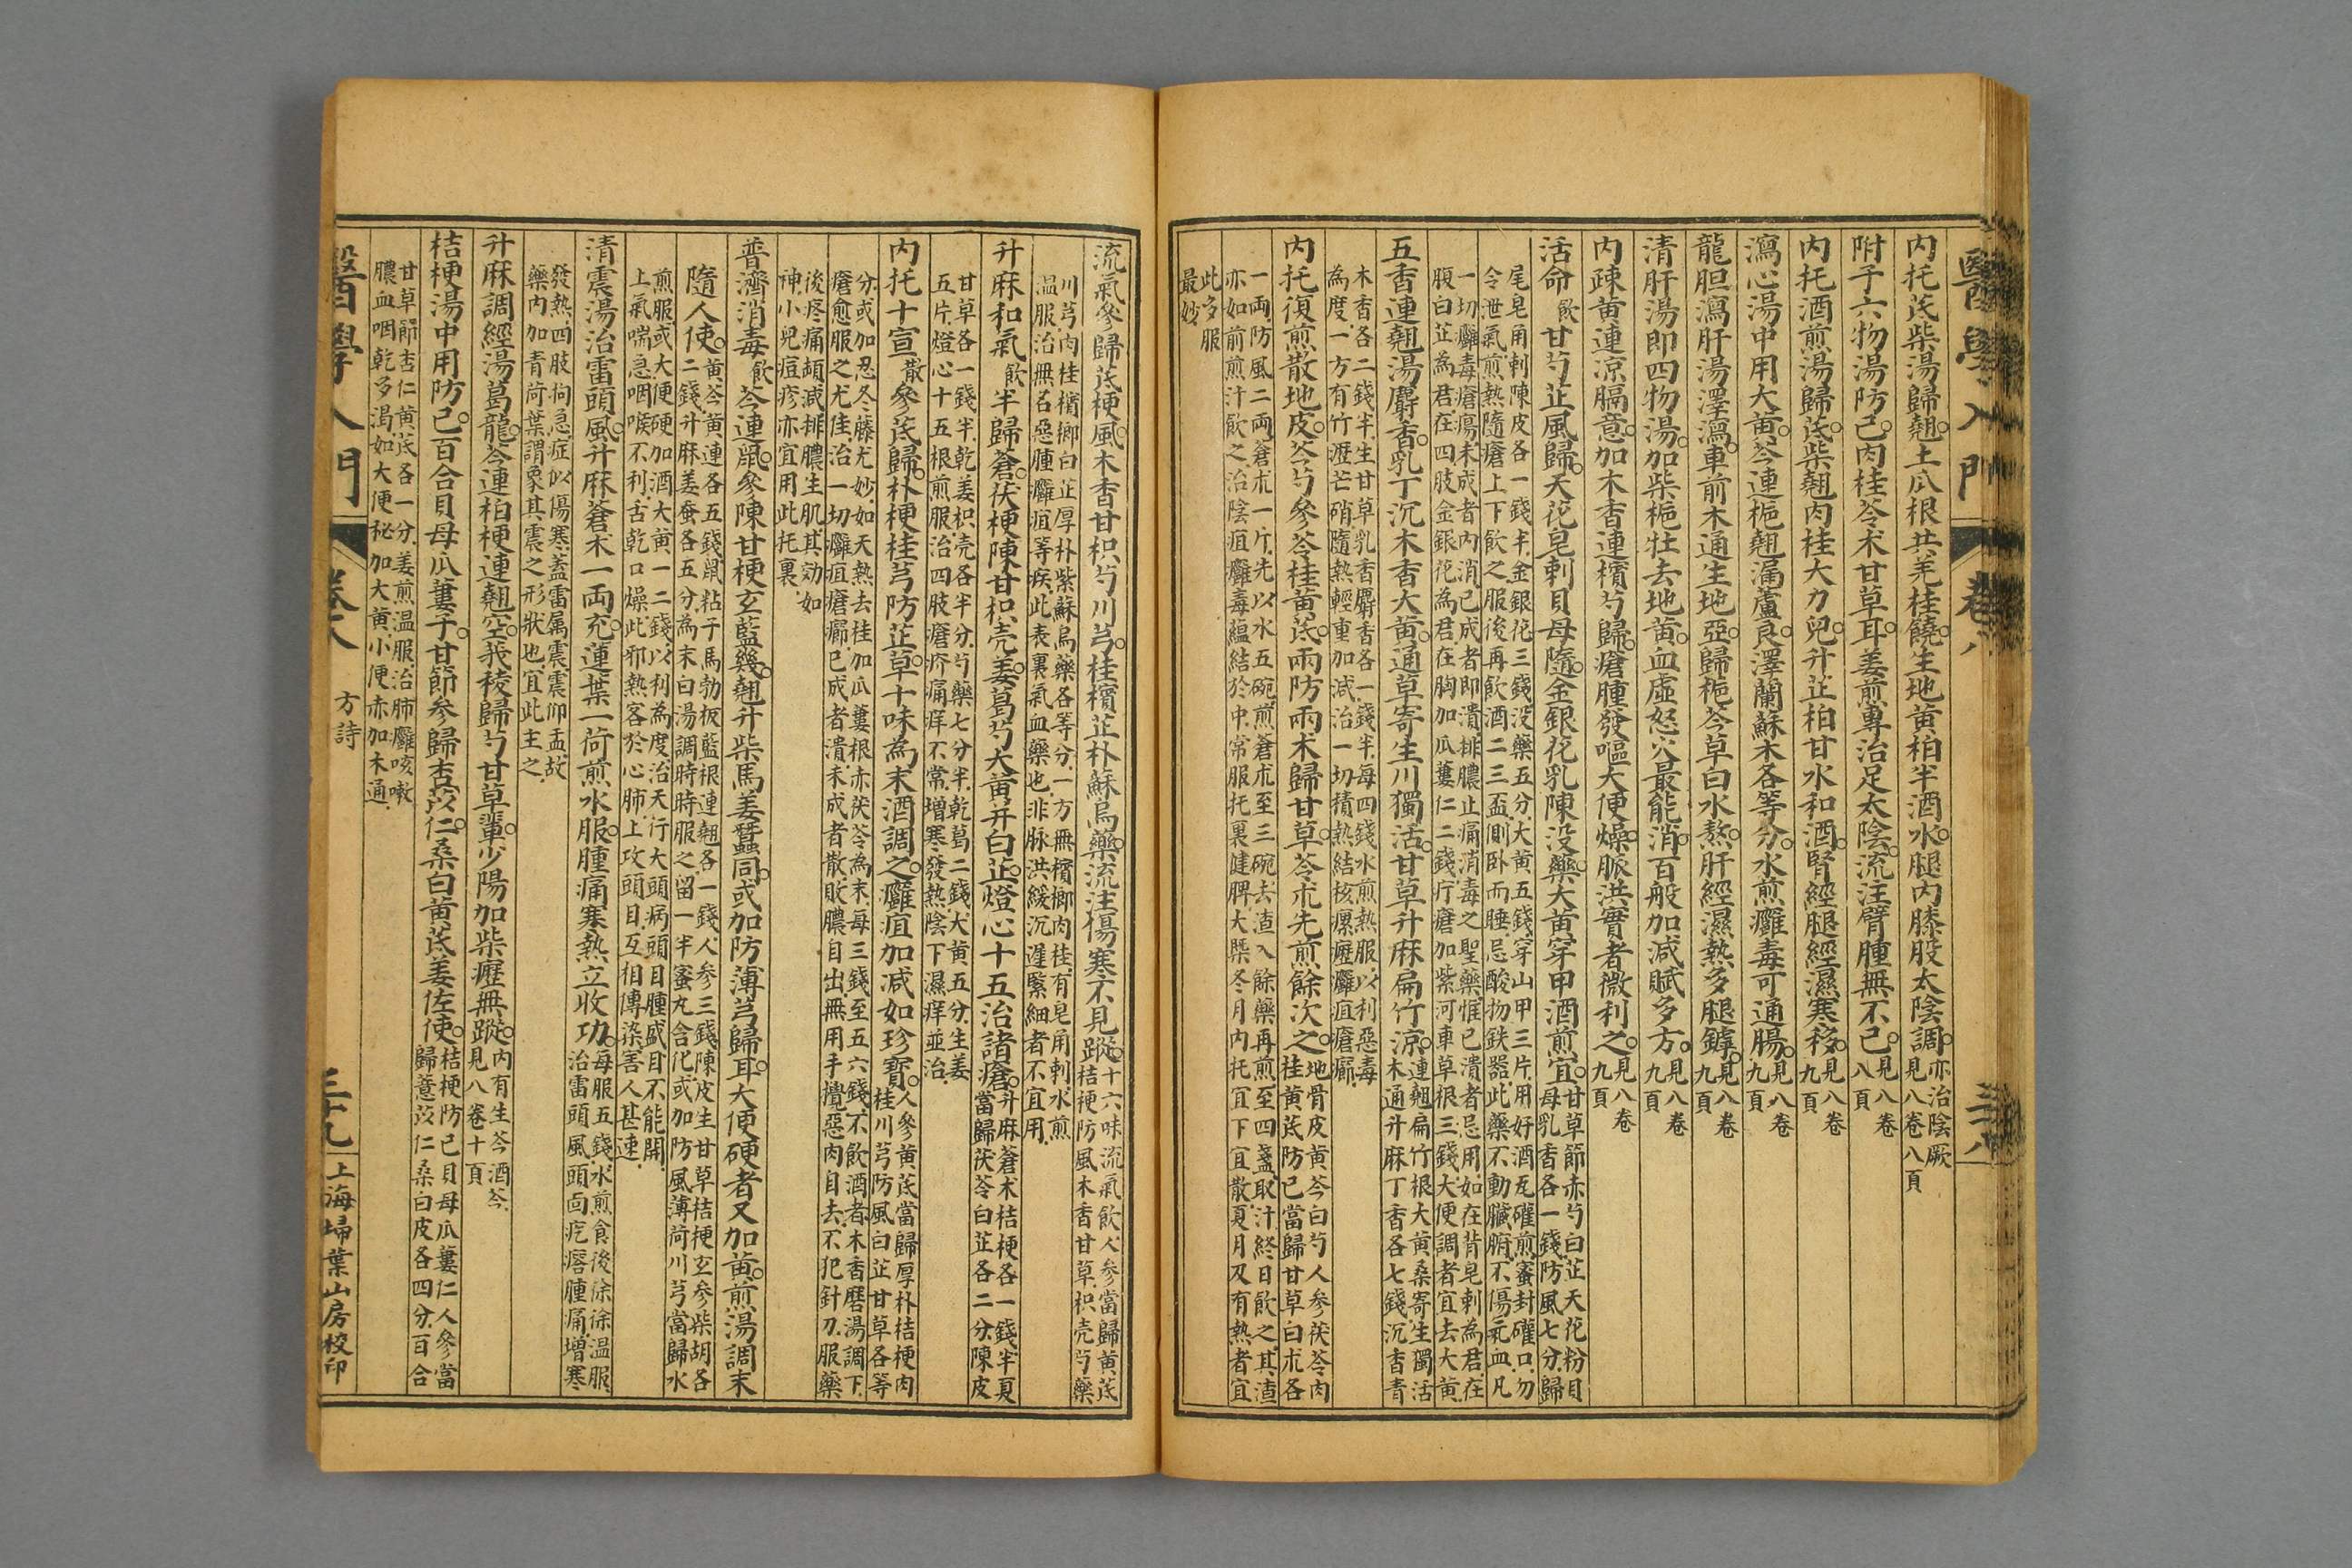 醫學入門
卷八
三十八
内托芪柴湯歸翹土瓜根共羌桂饒生地黄柏半酒水腿内膝股太陰調亦治陰厥見八卷八頁
附子六物湯防己肉桂苓术甘草耳姜煎專治足太陰流注臂腫無不已見八卷八頁
内托酒煎湯歸芪柴翹肉桂大力兒升芷柏甘水和酒腎經腿經濕寒移見八卷九頁
瀉心湯中用大黄芩連梔翹漏蘆良澤蘭蘇木各等分水煎癰毒可通腸見八卷九頁
龍胆瀉肝湯澤瀉車前木通生地亞歸梔芩草白水熬肝經濕熱多腿罅見八卷九頁
清肝湯即四物湯加柴梔牡去地黄血虛怒火最能消百般加減賦多方見八卷九頁
内疎黄連凉膈意加木香連檳芍歸瘡腫發嘔大便燥脈洪實者微利之見八卷九頁
活命飲甘芍芷風歸天花皂刺貝母隨金銀花乳陳没藥大黄穿甲酒煎宜甘草節赤芍白芷天花粉貝母乳香各一錢防風七分歸
尾皂角刺陳皮各一錢半金銀花三錢没藥五分大黄五錢穿山甲三片用好酒瓦礶煎蜜封礶口勿
令泄氣煎熱隨瘡上下飲之服後再飲酒二三盃側卧而睡忌酸物鉄器此藥不動臟腑不傷氣血凡
一切癰毒瘡瘍未成者内消已成者即潰排膿止痛消毒之聖藥惟已潰者忌用如在背皂刺為君在
腹白芷為君在四肢金銀花為君在胸加瓜蔞仁二錢疔瘡加紫河車草根三錢大便調者宜去大黄
五香連翹湯麝香乳丁沉木香大黄通草寄生川獨活甘草升麻扁竹凉連翹扁竹根大黄桑寄生獨活木通升麻丁香各七錢沉香青
木香各二錢半生甘草乳香麝香各一錢半每四錢水煎熱服以利惡毒
為度一方有竹瀝芒硝隨熱輕重加減治一切積熱結核瘰癧癰疽瘡癤
内托復煎散地皮芩芍參苓桂黄芪兩防兩术歸甘草苓朮先煎餘次之地骨皮黄芩白芍人參茯苓肉桂黄芪防己當歸甘草白朮各
一兩防風二兩蒼朮一斤先以水五碗煎蒼朮至三碗去渣入餘藥再煎至四盞取汁終日飲之其渣
亦如前煎汁飲之治陰疽癰毒蘊結於中常服托裏健脾大槩冬月内托宜下宜散夏月及有熱者宜
此多服
最妙
流氣參歸芪梗風木香甘枳芍川芎桂檳芷朴蘇烏藥流注傷寒不見蹤十六味流氣飲人參當歸黄芪桔梗防風木香甘草枳壳芍藥
川芎肉桂檳榔白芷厚朴紫蘇烏藥各等分一方無檳榔肉桂有皂角刺水煎
温服治無名惡腫癰疽等疾此表裏氣血藥也非脉洪緩沉遲緊細者不宜用
升麻和氣飲半歸蒼茯梗陳甘枳壳姜葛芍大黄并白芷燈心十五治諸瘡升麻蒼术桔梗各一錢半夏當歸茯苓白芷各二分陳皮
甘草各一錢半乾姜枳壳各半分芍藥七分半乾葛二錢大黄五分生姜
五片燈心十五根煎服治四肢瘡疥痛痒不常增寒發熱陰下濕痒並治
内托十宣散參芪歸朴梗桂芎防芷草十味為末酒調之癰疽加减如珍寶人參黄芪當歸厚朴桔梗肉桂川芎防風白芷甘草各等
分或加忍冬藤尤妙如天熱去桂加瓜蔞根赤茯苓為末每三錢至五六錢不飲酒者木香磨湯調下
瘡愈服之尤佳治一切癰疽瘡癤已成者潰未成者散敗膿自出無用手擠惡肉自去不犯針刀服藥
後疼痛頓減排膿生肌其効如
神小兒痘疹亦宜用此托裏
普濟消毒飲芩連鼠參陳甘梗玄藍幾翹升柴馬姜蠶同或加防薄芎歸耳大便硬者又加黄煎湯調末
隨人使黄芩黄連各五錢鼠粘子馬勃板藍根連翹各一錢人參三錢陳皮生甘草桔梗玄參柴胡各二錢升麻姜蚕各五分為末白湯調時時服之留一半蜜丸含化或加防風薄荷川芎當歸水
煎服或大便硬加酒大黄一二錢以利為度治天行大頭病頭目腫盛目不能開
上氣喘急咽喉不利舌乾口燥此邪熱客於心肺上攻頭目互相傳染害人甚速
清震湯治雷頭風升麻蒼术一兩充蓮葉一荷煎水服腫痛寒熱立收功每服五錢水煎食後徐徐温服治雷頭風頭面疙瘩腫痛增寒
發熱四肢拘急症似傷寒蓋雷屬震震仰盂故
藥内加青荷葉謂象其震之形狀也宜此主之
升麻調經湯葛龍芩連柏梗連翹空莪稜歸芍甘草輩少陽加柴癧無蹤内有生芩酒芩見八卷十頁
桔梗湯中用防己百合貝母瓜蔞子甘節參歸杏苡仁桑白黄芪姜佐使桔梗防己貝母瓜蔞仁人參當歸薏苡仁桑白皮各四分百合
甘草節杏仁黄芪各一分姜煎温服治肺癰咳嗽
膿血咽乾多渴如大便秘加大黄小便赤加木通
醫學入門
卷八
方詩
三十九
上海埽葉山房校印